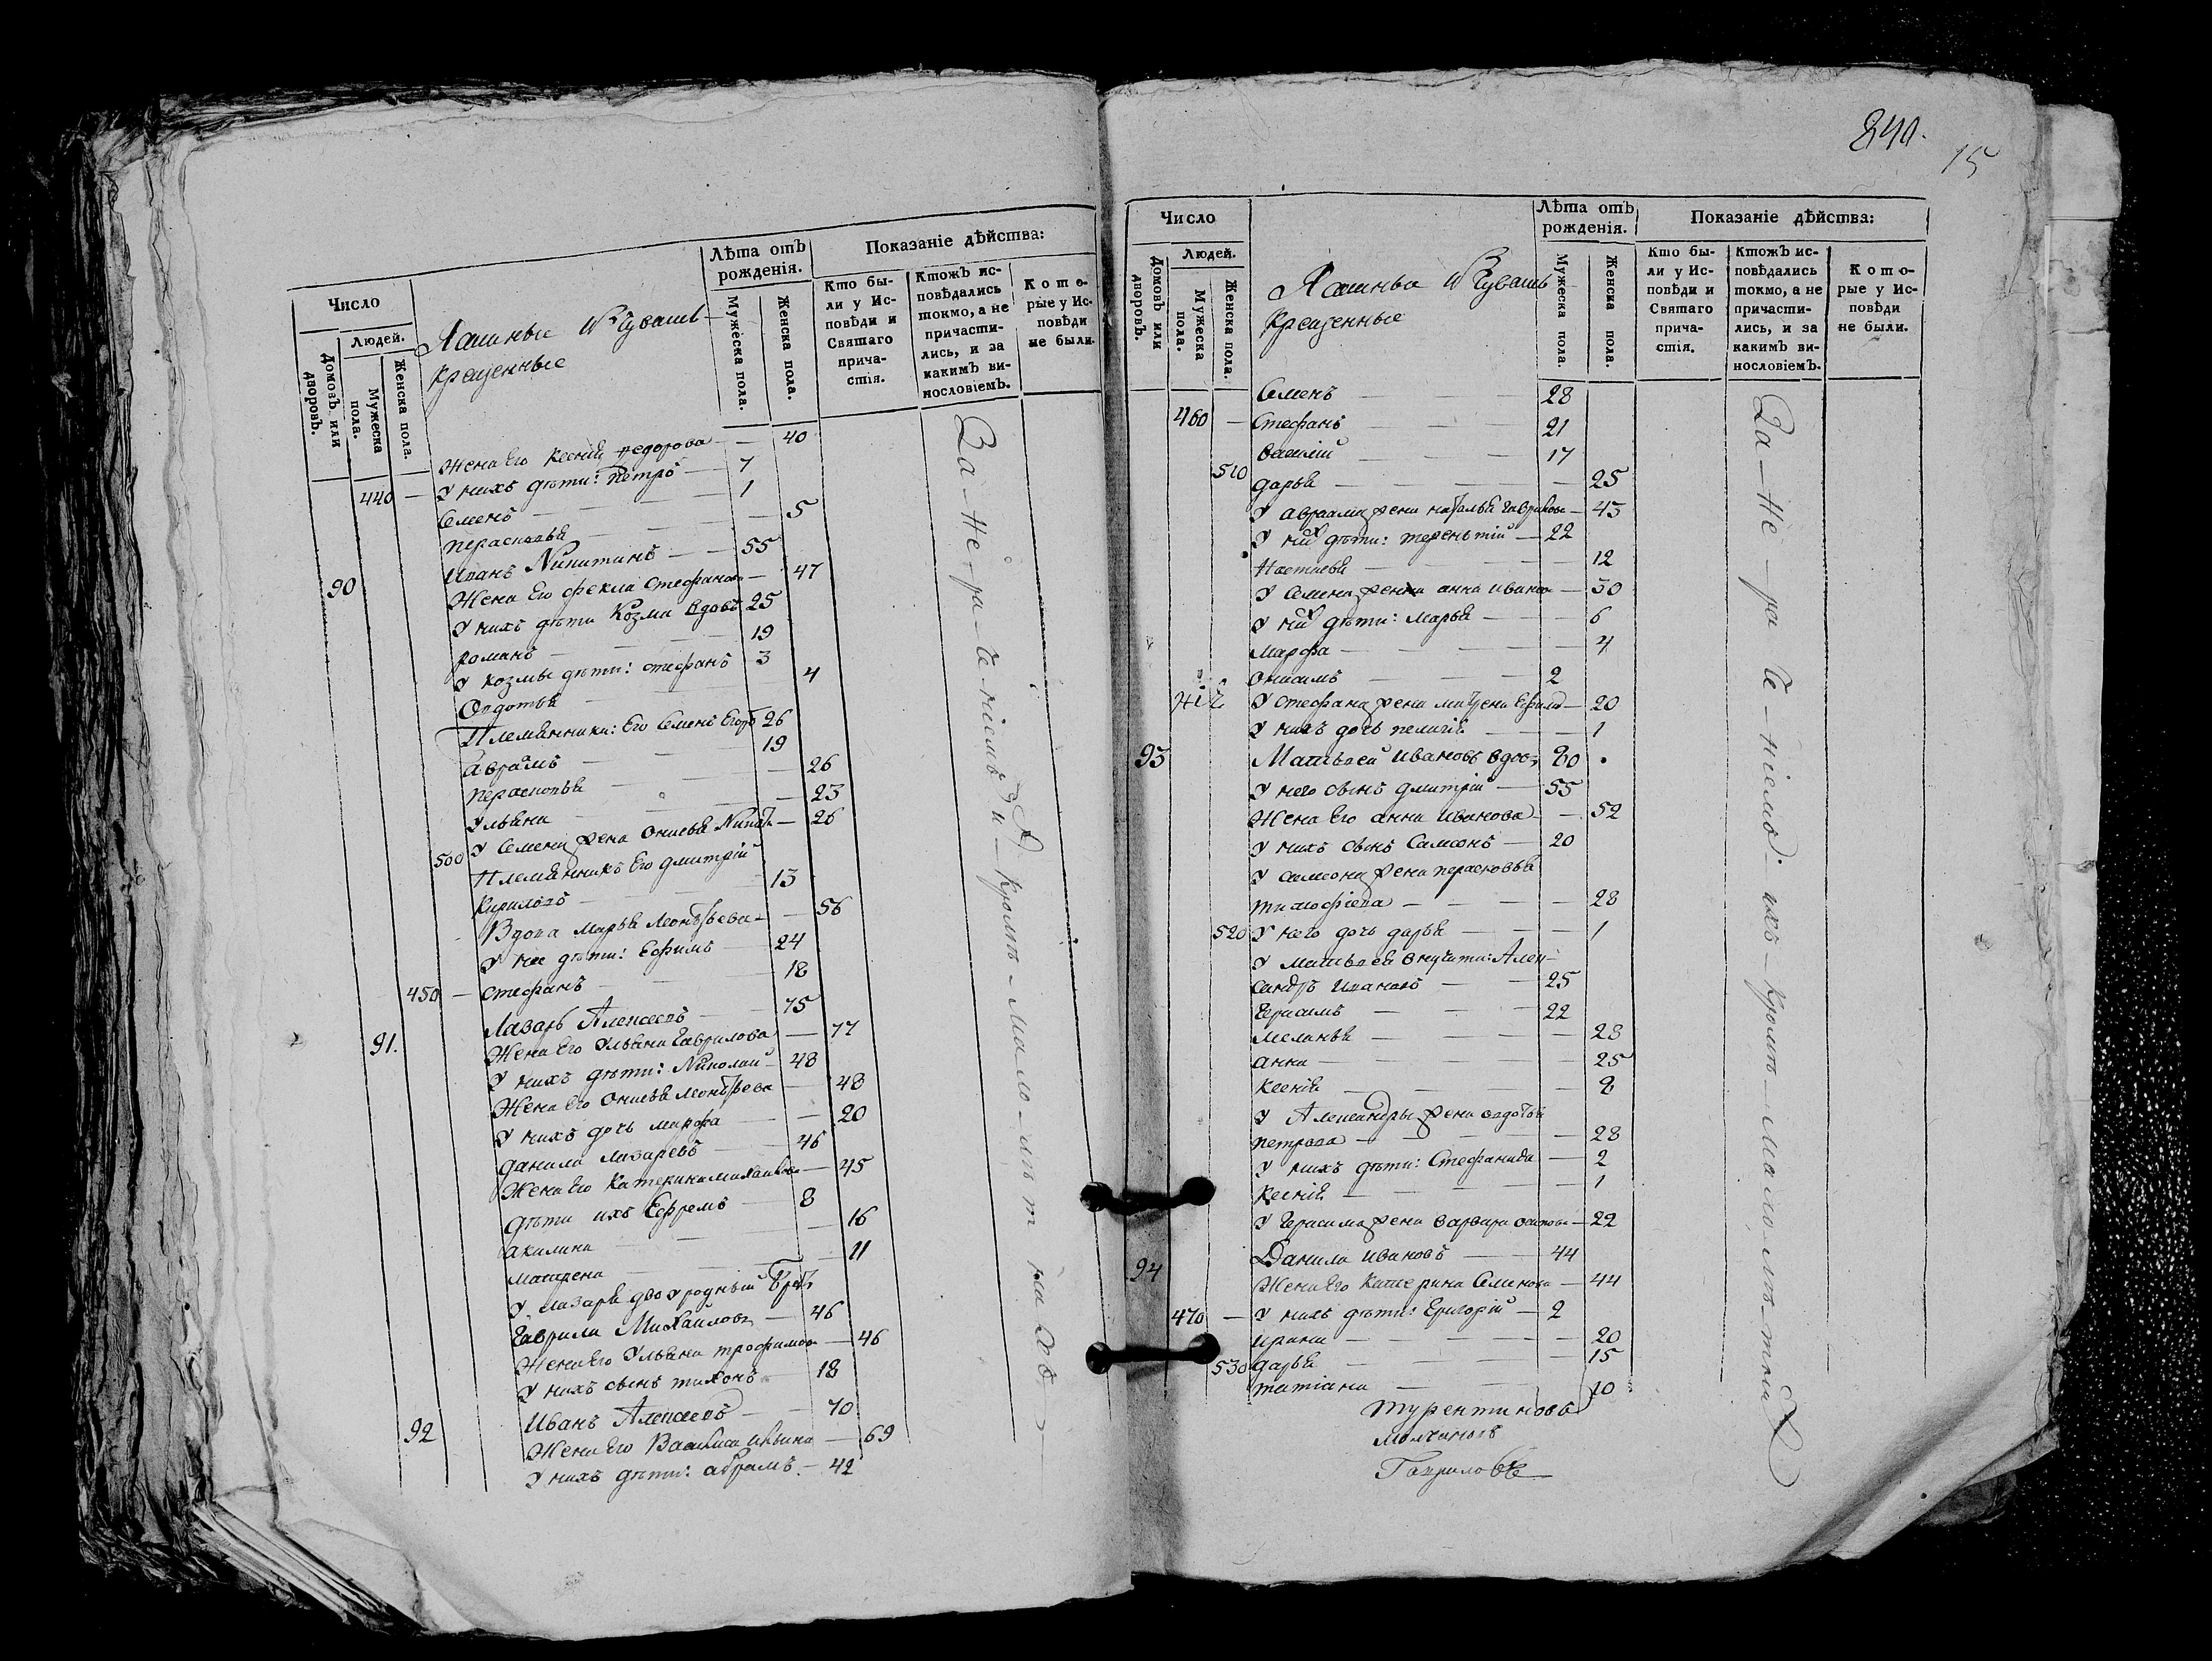 Число
Людей.
Домовъ или дворовъ.
Мужеска пола.
Женска пола.
крещенные
Лѣта отъ рожденія.
Мужеска пола.
Женска пола.
Показаніе дѣйства:
Кто бы-
ли у Ис-
повѣди и
Святаго
прича-
стія.
Ктожъ ис-
повѣдались
токмо, а не
причасти-
лись, и за
какимъ ви-
нословіемъ.
Кото-
рые у Ис-
повѣди
не были.
Жена Его Ксенія Федорова — — 40
440 — У нихъ дѣти: Петръ — 7
Семенъ — 1
Перасковья — 5
90 Иванъ Никитинъ — — 55
Жена Его Фекла Стефанова — 47
У нихъ дѣти Козма вдовъ 25
Романъ — 19
У Козмы дѣти: Стефанъ 3
Овдотья — 4
Племянники: Его Семенъ Егоръ 26
Аврамъ — 19
Перасковья — 26
Ульяна — 23
500 У Семена жена Онисья Никит — 26
Племянникъ Его Дмитрій
Кириловъ — 13
Вдова Марья Леонтьева — — 56
У нее дѣти: Ефимъ — 24
450 — Стефанъ — 18
91. Лазарь Алексеевъ — 75
Жена Его Ульяна Гаврилова — 77
У нихъ дѣти: Николай — 48
Жена Его Онисья Леонтьева — 48
У нихъ дочь Марфа — 20
Данила Лазаревъ — 46
Жена Его Катерина Михайлова — 45
Дѣти ихъ Ефремъ — 8
Акилина — 16
Матрена — 11
У Лазаря двоуродный братъ
Гаврила Михайловъ — 46
Жена Его Ульяна Трофимова — 46
У нихъ сынъ Тихонъ — 18
92 Иванъ Алексеевъ — 70
Жена Его Василиса Ильина — 69
У нихъ дѣти: Абрамъ — 42
За не ра че ніемъ их кромѣ мало лѣт на хъ
840.
15
Число
Людей.
Домовъ или дворовъ.
Мужеска пола.
Женска пола.
крещенные
Лѣта отъ рожденія.
Мужеска пола.
Женска пола.
Показаніе дѣйства:
Кто бы-
ли у Ис-
повѣди и
Святаго
прича-
стія.
Ктожъ ис-
повѣдались
токмо, а не
причасти-
лись, и за
какимъ ви-
нословіемъ.
Кото-
рые у Ис-
повѣди
не были.
Семенъ — 28
460 — Стефанъ — 21
Василій — 17
510 Дарья — 25
У Авраама жена Наталья Гаврилова — 43
У них дѣти: Терентій — 22
Настасья — 12
У Семена жена Анна Иванова — 30
У них дѣти: Марья — 6
Марфа — 4
Онисимъ — 2
У Стефана жена Матрена Ефимо — 20
У нихъ дочь Пелагія — 1
93 Матьвей Ивановъ вдовъ 80
У него сынъ Дмитрій — 55
Жена Его Анна Иванова — 52
У нихъ сынъ Самсонъ — 20
У Самсона жена Перасковья
Тимофеева — 28
520 У него дочь Дарья — 1
У Матьвея внучати: Алек-
сандръ Ивановъ — 25
Герасимъ — 22
Меланья — 28
Анна — 25
Ксенія — 8
У Александры жена Овдотья
Петрова — 28
У нихъ дѣти: Стефанида — 2
Ксенія — 1
У Герасима жена Варвара Осипова — 22
94 Данила Ивановъ — 44
Жена Его Катерина Семенова — 44
470 — У нихъ дѣти: Григорій — 2
Ирина — 20
530 Дарья — 15
Татіана — 10
Турентиновъ
Молчановъ
Гавриловъ
За не ра че ніемъ ихъ кромѣ мало лѣтныхъ